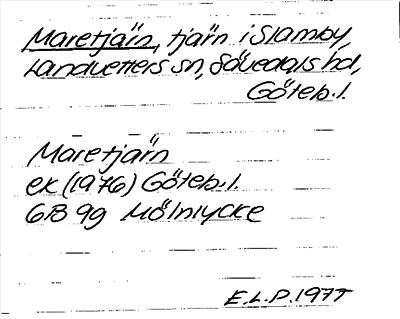 Maretjärn, tjärn i Slamby,
Landvetters sn, Sävedals hd,
Göteb. l.
Maretjärn
ek (1976) Göteb. l.
6B 9g Mölnlycke
E.L.P. 1977